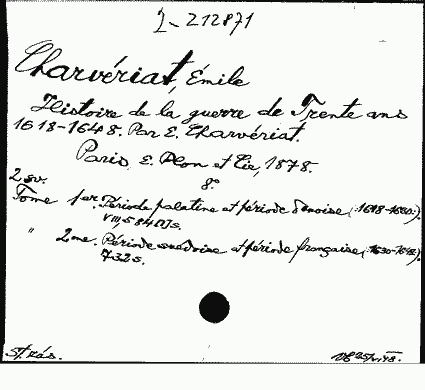 2-212871
Charvériat, Émile
Histoire de la guerre de Trente ans
1618-1648. Par E. Charvériat.
Paris, E. Plon et Cie, 1878.
8°
2 sv.
Tome 1er. Période palatine et période danoise (1618-1630).
VIII, 584 s.
" 2me. Période suédoise et période française (1630-1648).
732 s.